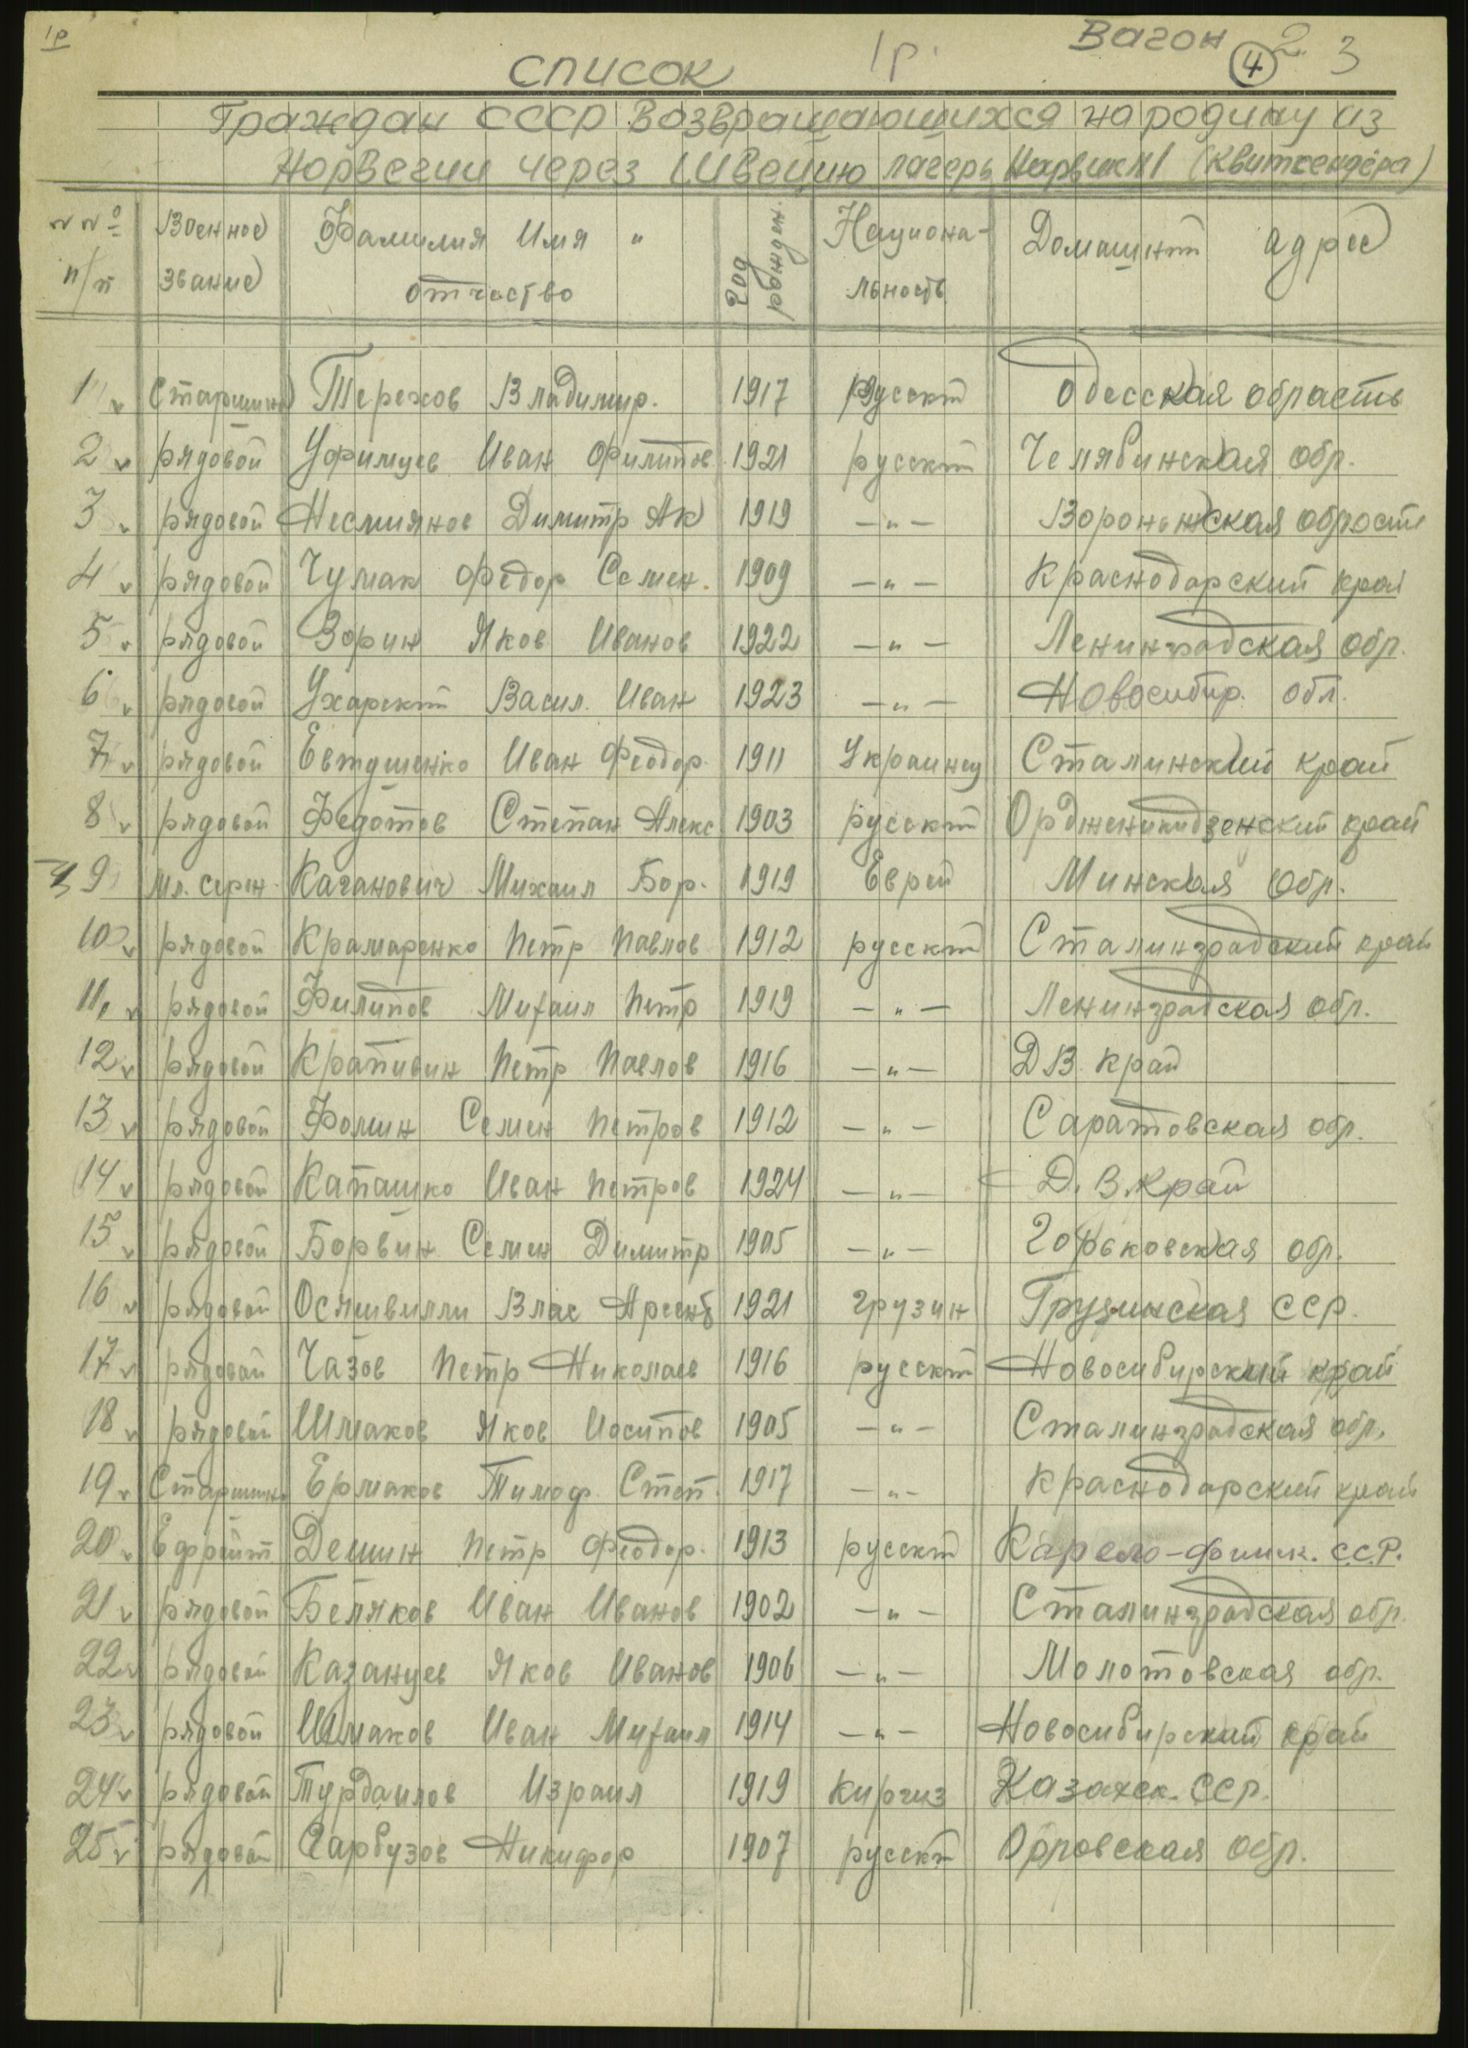 1р
1р. Вагон 2 3
4
Список
Граждан СССР возвращающихся на родину из
Норвегии через Швецию лагерь Нарвик №1 (Квиткендера)
№№ п/п | Военное звание | Фамилия Имя " отчество | Год рожден. | Национальность | Домашний адрес
1 v Старшина Терехов Владимир. 1917 Русский Одесская область
2 v рядовой Уфимцев Иван Филипов 1921 русский Челябинская обр.
3 v рядовой Несмиянов Димитр Ак 1919 —"— Вороньжская область
4 v рядовой Чумак Федор Семен. 1909 —"— Краснодарский край
5 v рядовой Зорин Яков Иванов 1922 —"— Ленинградская обр.
6 v рядовой Ухарский Васил. Иван 1923 —"— Новосибир. обл.
7 v рядовой Евтушенко Иван Феодор. 1911 Украинец Сталинский край
8 v рядовой Федотов Степан Алекс 1903 русский Ордженикидзенский край
9 Мл. серж. Каганович Михаил Бор. 1919 Еврей Минская Обр.
10 v рядовой Крамаренко Петр Павлов 1912 русский Сталинградский край
11, v рядовой Филипов Михаил Петр 1919 —"— Ленинградская обр.
12 v рядовой Крапивин Петр Павлов 1916 —"— ДВ. край
13 v рядовой Фомин Семен Петров 1912 —"— Саратовская обр.
14 v рядовой Капашко Иван Петров 1924 —"— Д.В.Край
15 v рядовой Борвин Семен Димитр 1905 —"— Горьковская обр.
16 v рядовой Осяшвилли Влас Арсенб 1921 грузин Грузинская ССР.
17 v рядовой Чазов Петр Николаев 1916 русский Новосибирский край
18 v рядовой Шмаков Яков Иосипов 1905 —"— Сталинградская обр.
19 v Старшина Ермаков Тимоф. Степ. 1917 —"— Краснодарский край
20 v Ефрейт Демин Петр Феодор. 1913 русский Карело-финск. С.С.Р.
21 v рядовой Беляков Иван Иванов 1902 —"— Сталинградская обр.
22 v рядовой Казанцев Яков Иванов 1906 —"— Молотовская обр.
23 v рядовой Шмаков Иван Михаил 1914 —"— Новосибирский край
24 v рядовой Турдаилов Израил 1919 Киргиз Казахск. ССР.
25 v рядовой Гарбузов Никифор 1907 русский Орловская Обр.